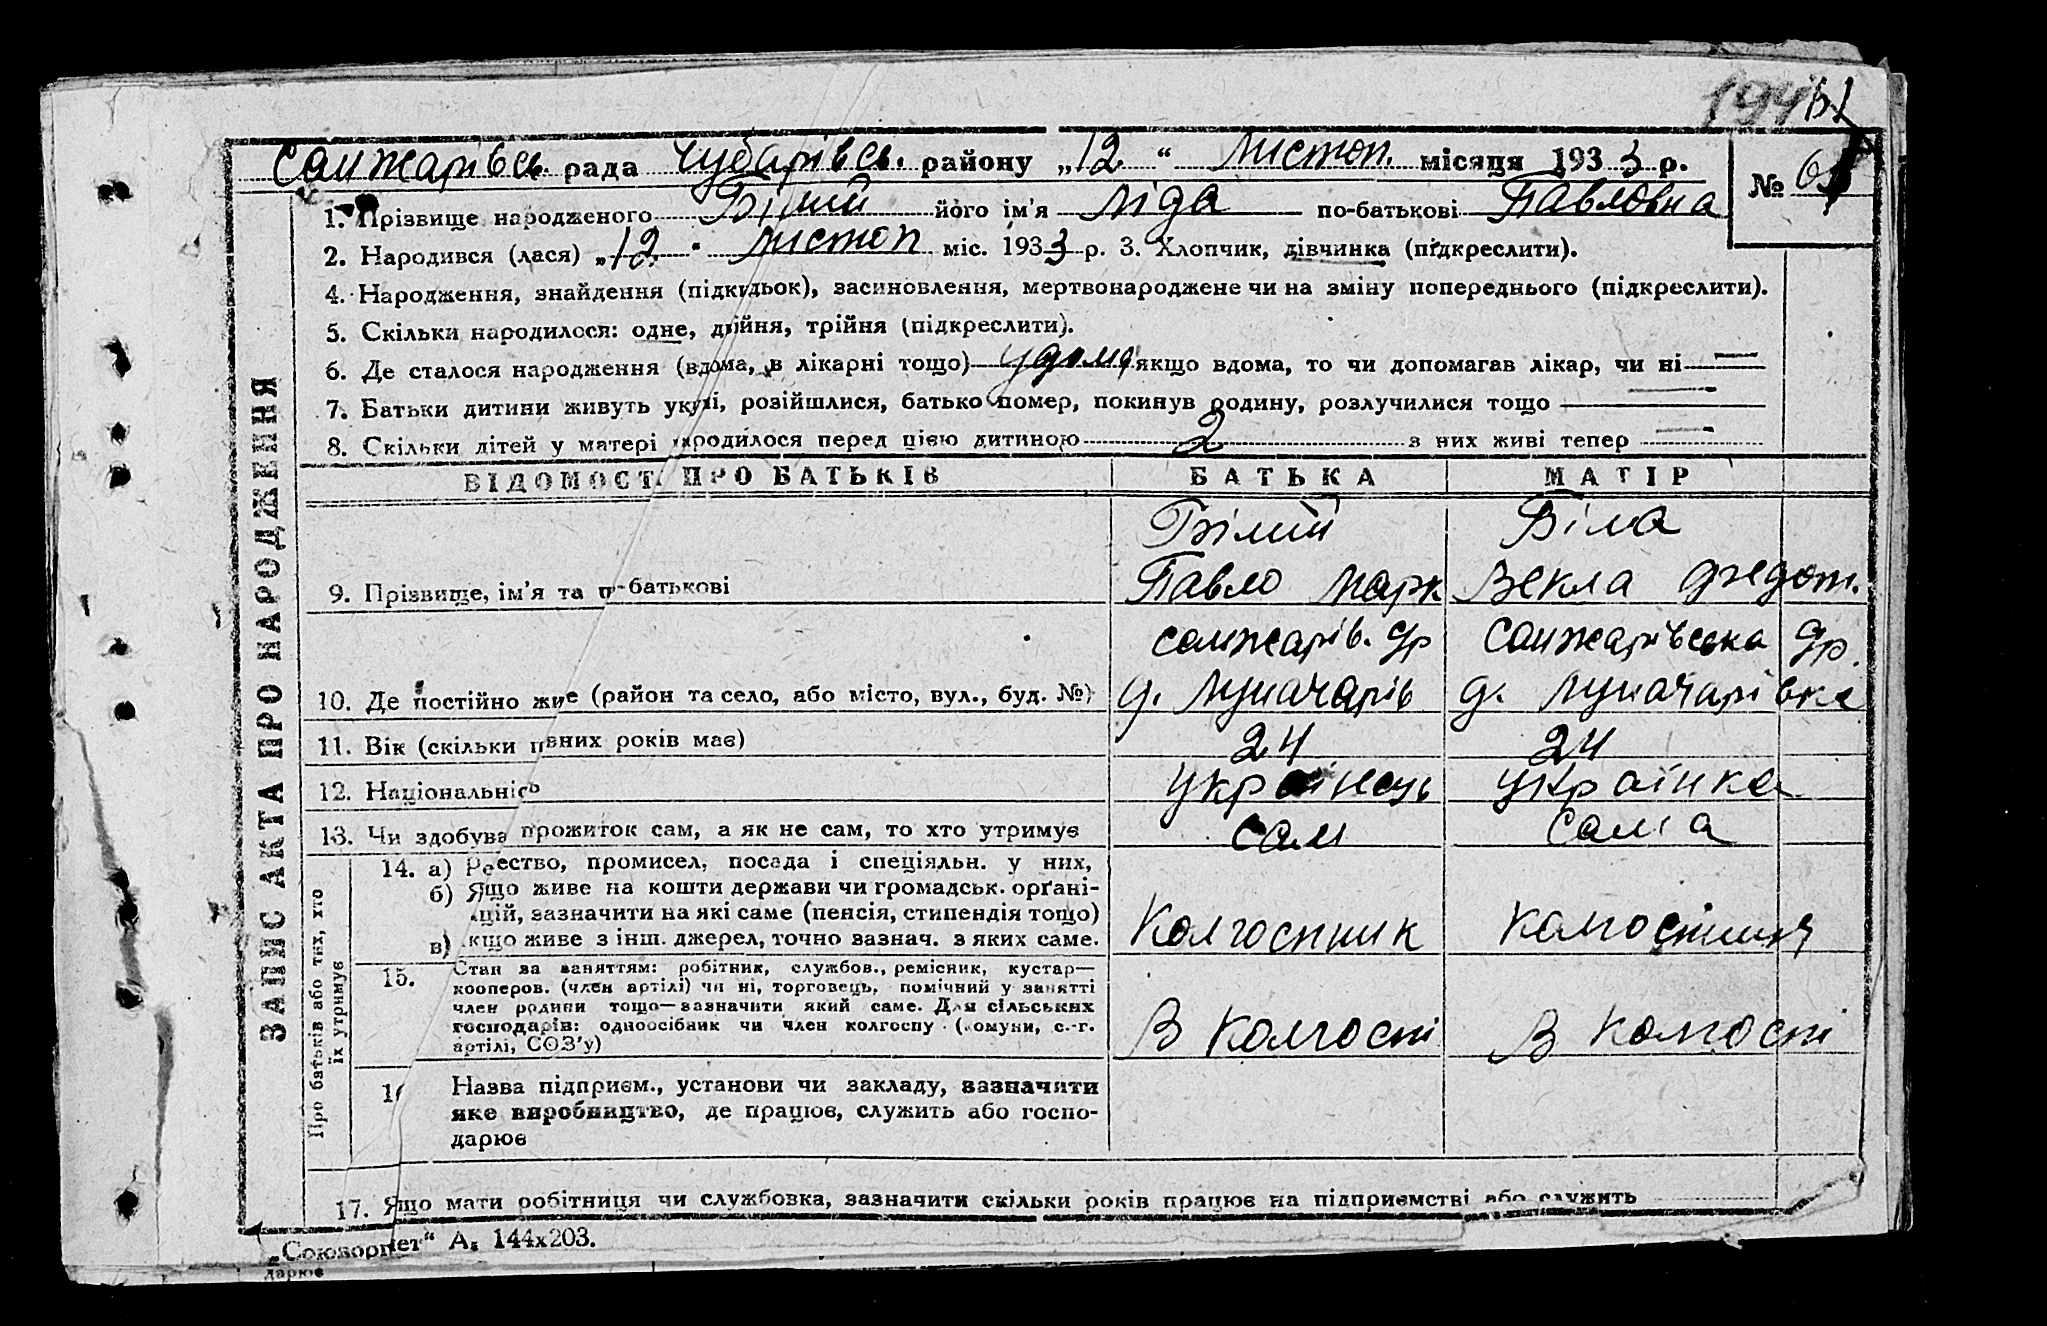 Санжарівсь. рада Чубарівсь. району „12“ листоп. місяця 1933 р.
№
1. Прізвище народженого Білий його ім'я Ліда по-батькові Павловна
2. Народився (лася) „12“ листоп міс. 1933 р. 3. Хлопчик, дівчинка (підкреслити).
4. Народження, знайдення (підкидьок), засиновлення, мертвонароджене чи на зміну попереднього (підкреслити).
5. Скільки народилося: одне, двійня, трійня (підкреслити).
6. Де сталося народження (вдома, в лікарні тощо) удома якщо вдома, то чи допомагав лікар, чи ні —
7. Батьки дитини живуть укупі, розійшлися, батько помер, покинув родину, розлучилися тощо —
8. Скільки дітей у матері народилося перед цією дитиною 2 з них живі тепер —
ЗАПИС АКТА ПРО НАРОДЖЕННЯ
ВІДОМОСТІ ПРО БАТЬКІВ БАТЬКА МАТІР
Білий Біла
9. Прізвище, ім'я та по-батькові Павло Марк Векла Федот.
санжарів. с/р Санжарівська с/р.
10. Де постійно живе (район та село, або місто, вул., буд. №) д. Луначарів д. Луначарівка
11. Вік (скільки повних років має) 24 24
12. Національність українець українка
13. Чи здобуває прожиток сам, а як не сам, то хто утримує сам сама
Про батьків або тих, хто
їх утримує
14. а) Реєство, промисел, посада і спеціяльн. у них,
б) Якщо живе на кошти держави чи громадськ. орґані-
зацій, зазначити на які саме (пенсія, стипендія тощо)
в) якщо живе з інш. джерел, точно зазнач. з яких саме. Колгоспник колгоспниця
15. Стан за заняттям: робітник, службов., ремісник, кустар—
кооперов. (член артілі) чи ні, торговець, помічний у занятті
член родини тощо—зазначити який саме. Для сільських
господарів: одноосібник чи член колгоспу (комуни, с.-г.
артілі, СОЗ'у) В колгоспі В колгоспі
16 Назва підприєм., установи чи закладу, зазначити
яке виробництво, де працює, служить або госпо-
дарює
17. Якщо мати робітниця чи службовка, зазначити скільки років працює на підприємстві або служить
„Союзоргнет“ А₅ 144x203.
дарює